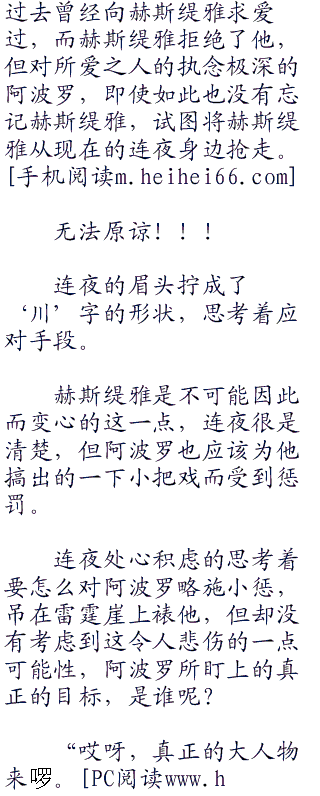 过去曾经向赫斯缇雅求爱
过，而赫斯缇雅拒绝了他，
但对所爱之人的执念极深的
阿波罗，即使如此也没有忘
记赫斯缇雅，试图将赫斯缇
雅从现在的连夜身边抢走。
[手机阅读m.heihei66.com]
无法原谅！！！
连夜的眉头拧成了
‘川’字的形状，思考着应
对手段。
赫斯缇雅是不可能因此
而变心的这一点，连夜很是
清楚，但阿波罗也应该为他
搞出的一下小把戏而受到惩
罚。
连夜处心积虑的思考着
要怎么对阿波罗略施小惩，
吊在雷霆崖上裱他，但却没
有考虑到这令人悲伤的一点
可能性，阿波罗所盯上的真
正的目标，是谁呢？
“哎呀，真正的大人物
来啰。[PC阅读www.h